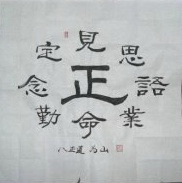 見
定 思
念 正 語
勤 命 業
八正道 为山